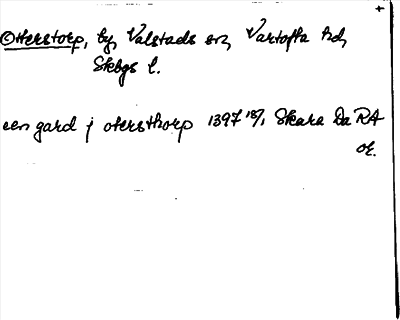 +
Otterstorp, by, Valstads sn, Vartofta hd,
Skbgs l.
een gard j otersthorp 1397 18/1 Skara Da RA
OE.